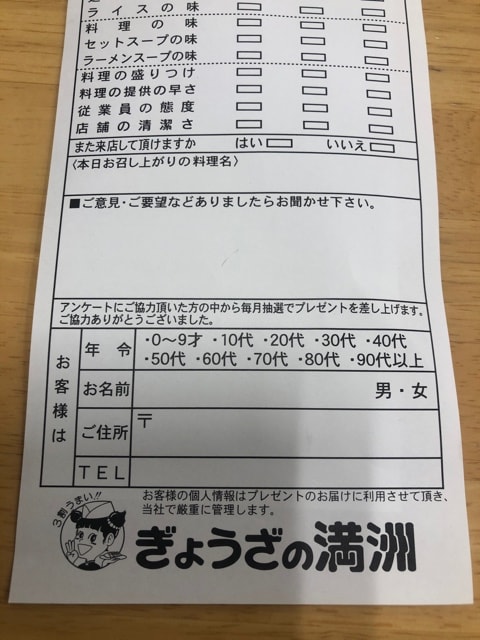 ライスの味
料理の味
セットスープの味
ラーメンスープの味
料理の盛りつけ
料理の提供の早さ
従業員の態度
店舗の清潔さ
また来店して頂けますか はい いいえ
〈本日お召し上がりの料理名〉
■ご意見・ご要望などありましたらお聞かせ下さい。
アンケートにご協力頂いた方の中から毎月抽選でプレゼントを差し上げます。
ご協力ありがとうございました。
お客様は
年令
・0〜9才 ・10代 ・20代 ・30代 ・40代
・50代 ・60代 ・70代 ・80代 ・90代以上
お名前 男・女
ご住所 〒
TEL
お客様の個人情報はプレゼントのお届けに利用させて頂き、
当社で厳重に管理します。
3割うまい!!
ぎょうざの満洲